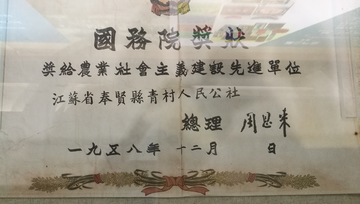 國務院獎狀
獎給農業社會主義建設先進單位
江蘇省奉賢縣青村人民公社
總理 周恩来
一九五八年 十二月 日